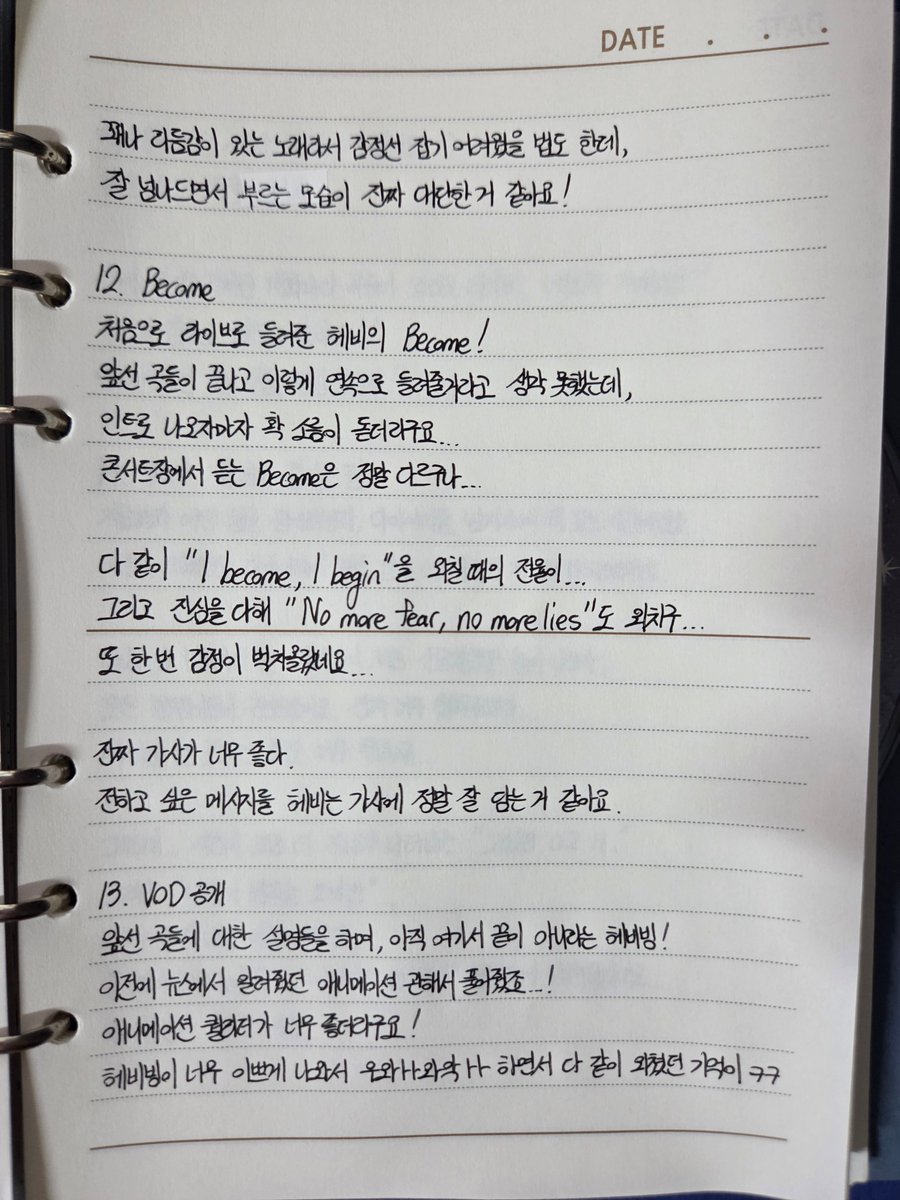 DATE . . .
꽤나 리듬감이 있는 노래라서 감정선 잡기 어려웠을 법도 한데,
잘 넘나드면서 부르는 모습이 진짜 대단한 거 같아요!
12. Become
처음으로 라이브로 들려준 헤비의 Become!
앞선 곡들이 끝나고 이렇게 연속으로 들려줄거라고 생각 못했는데,
인트로 나오자마자 확 소름이 돋더라구요...
콘서트장에서 듣는 Become은 정말 다르구나...
다 같이 "I become, I begin"을 외칠 때의 전율이...
그리고 진심을 다해 "No more fear, no more lies"도 외치구...
또 한 번 감정이 벅차올랐네요...
진짜 가사가 너무 좋다.
전하고 싶은 메시지를 헤비는 가사에 정말 잘 담는 거 같아요.
13. VOD 공개
앞선 곡들에 대한 설명들을 하며, 아직 여기서 끝이 아니라는 헤비빙!
이전에 뉴스에서 알려줬던 애니메이션 관해서 풀어줬죠...!
애니메이션 퀄리티가 너무 좋더라구요!
헤비빙이 너무 이쁘게 나와서 우와ㅏㅏ와악ㅏㅏ 하면서 다 같이 외쳤던 기억이 ㅋㅋ